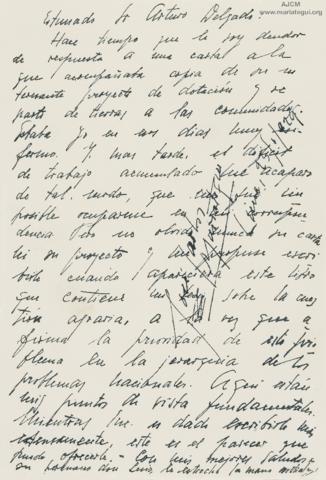 AJCM
www.mariategui.org
Estimado Sr Arturo Delgado:
Hace tiempo que le soy deudor
de respuesta a una carta a la
que acompañaba copia de su in
teresante proyecto de dotación y re
parto de tierras a las comunidades.
Estaba yo en esos días muy en
fermo. Y más tarde, el
de trabajo acumulado me acaparó
de tal modo, que me fue im
posible ocuparme en mi correspon
dencia. Pero no olvidé nunca su carta
ni su proyecto y me propuse escri
birle cuando apareciera este libro
que contiene un sobre la cues
tión agraria, a la vez que a
firma la prioridad de este pro
blema en la jerarquía de los
problemas nacionales. Aquí están
mis puntos de vista fundamentales.
Mientras me es dado escribirle más
extensamente, este es el parecer que
puedo ofrecerle. - Con mis mejores saludos a
su hermano don Luis, le estrecha la mano